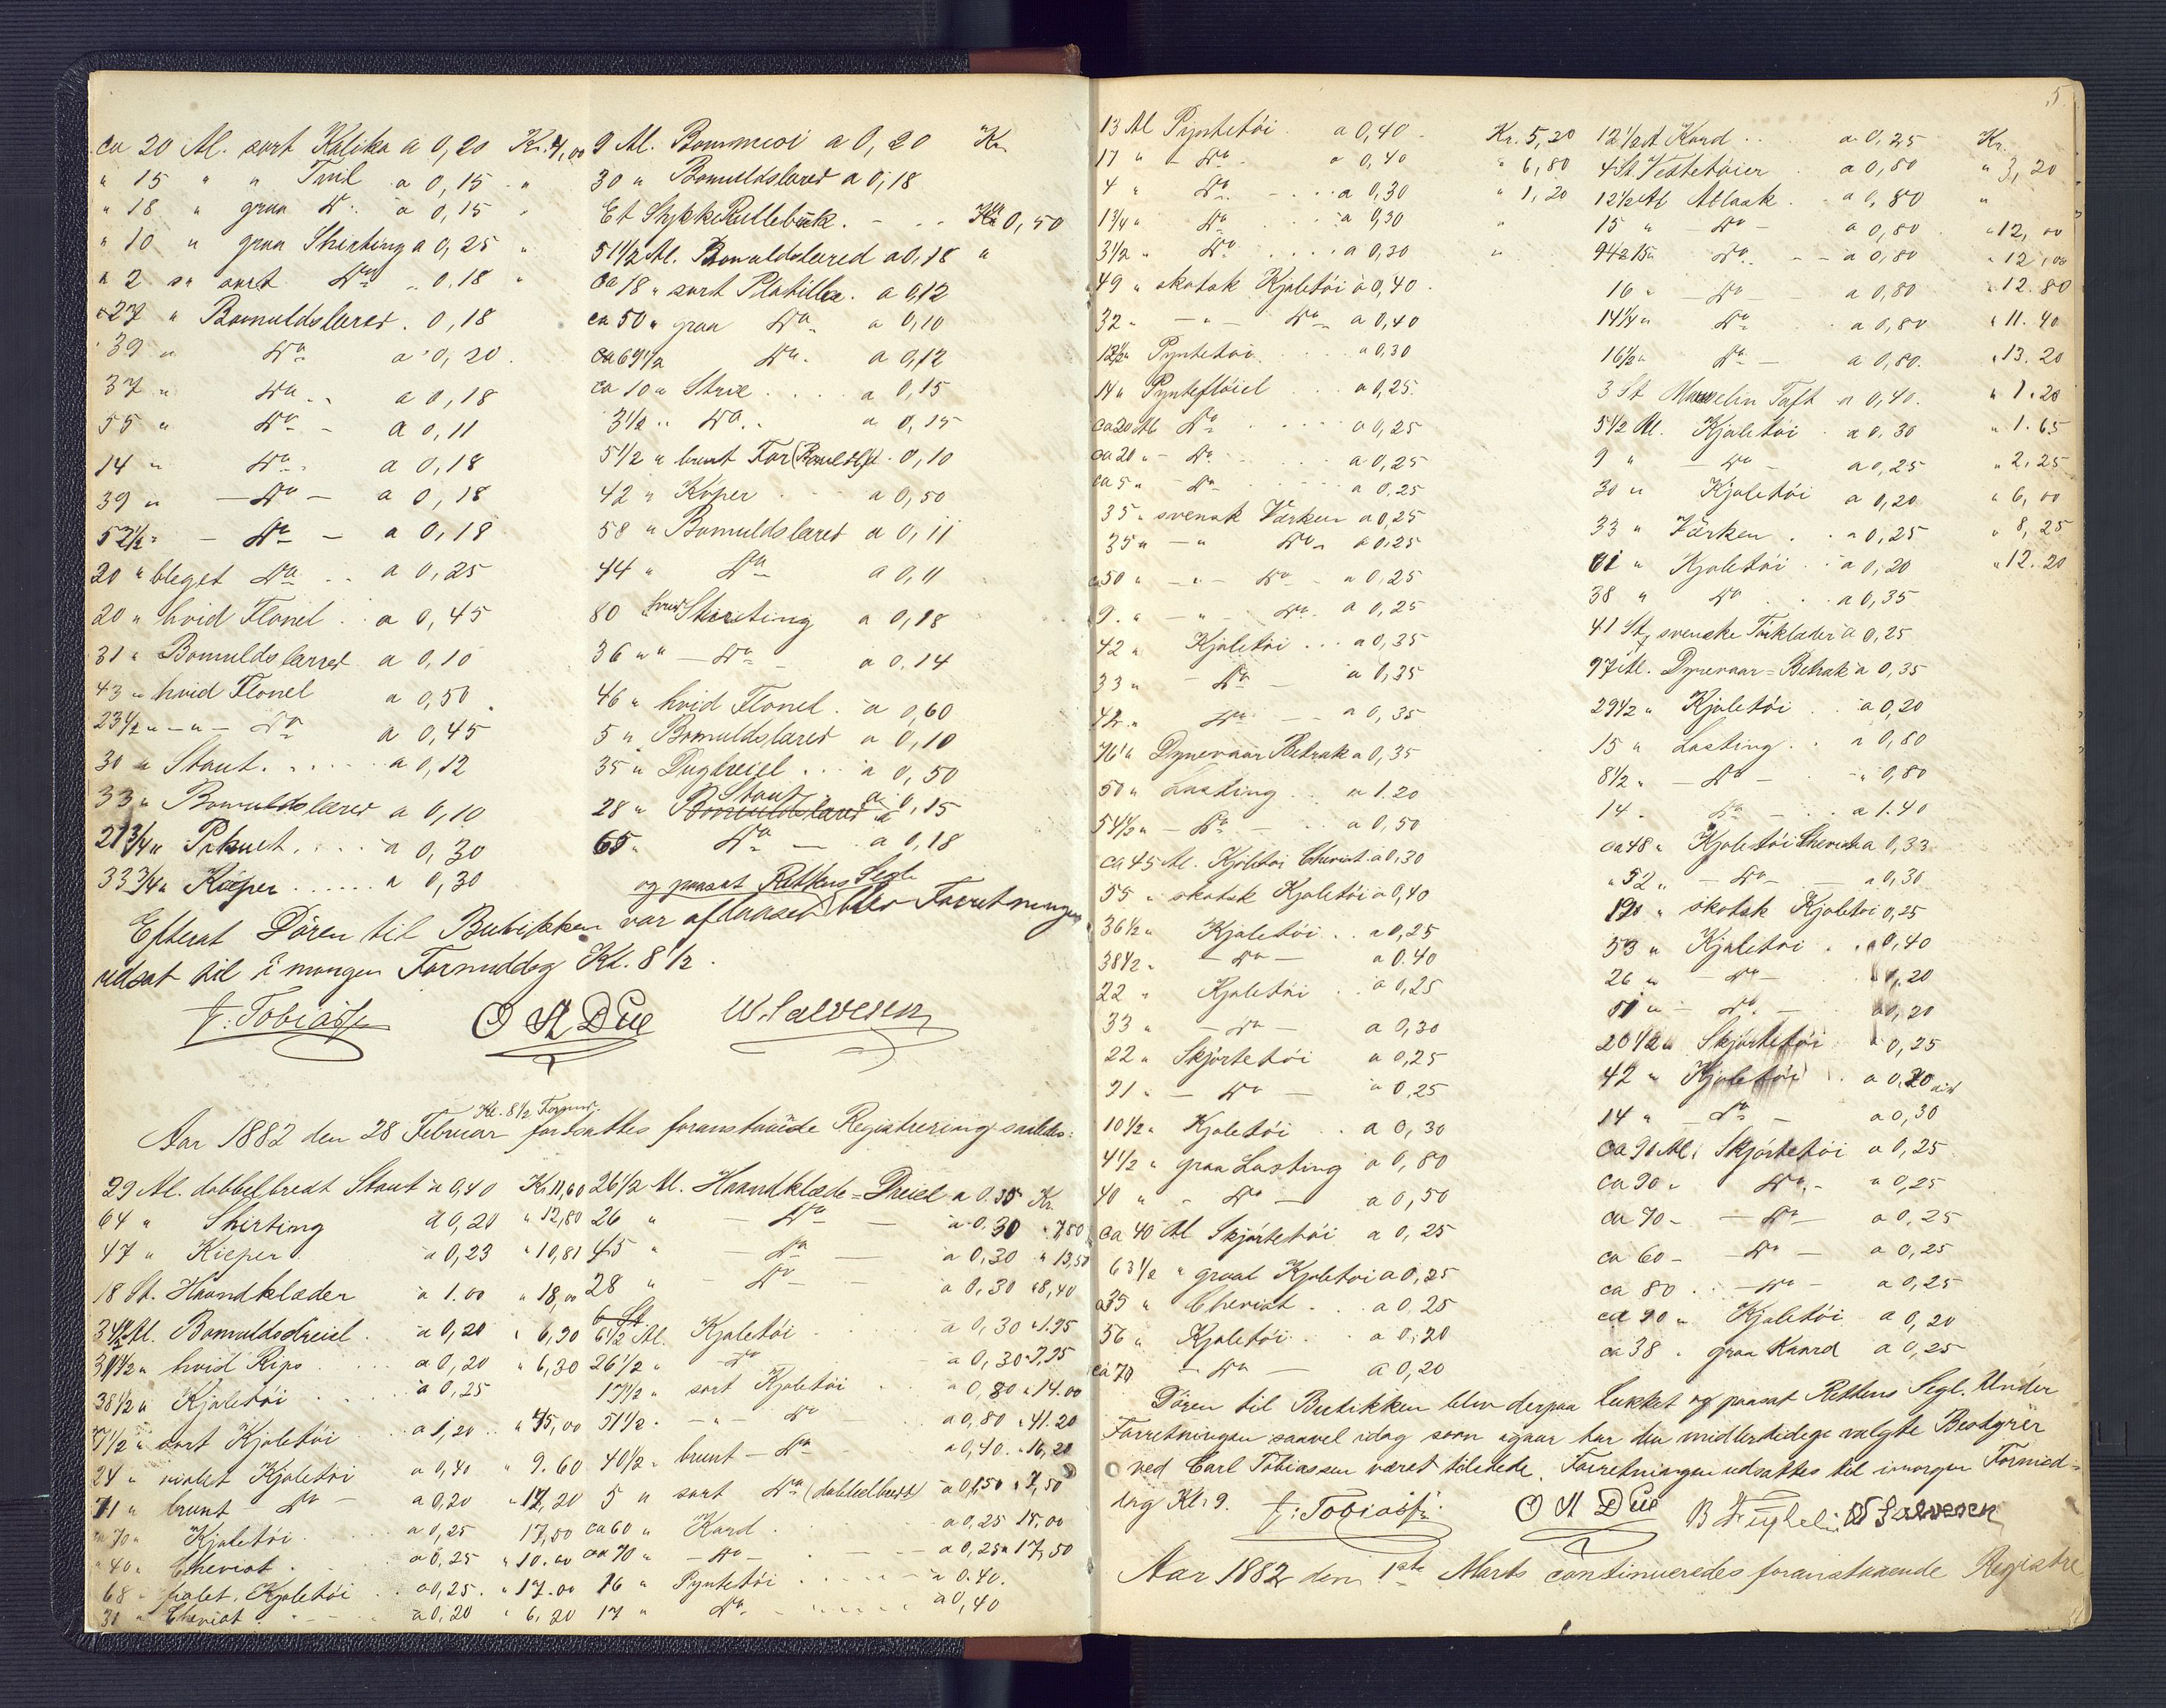 ca 20 Al. sort Kalika a 0,20 Kr. 4,00
" 15 " " Tvil a 0,15 "
" 18 " graa Do a 0,15 "
" 10 " graa Shirting a 0,25 "
" 2 " sort Do 0,18 "
" 27 " Bomuldslæred . 0,18
39 " Do a 0,20
37 " Do a 0,18
55 " Do a 0,11
14 " Do a 0,18
39 " Do a 0,18
52 1/2 " Do a 0,18
20 " bleget Do a 0,25
20 " hvid Flonel a 0,45
31 " Bomuldslærred a 0,10
43 " hvid Flonel a 0,50
23 1/2 " " Do a 0,45
30 " Stout a 0,12
33 " Bomuldslæred a 0,10
21 3/4 " a 0,30
33 3/4 " Kieper a 0,30
9 Al. Bommesi a 0,20 Kr.
30 " Bomuldslæred a 0,18
Et Stykke Rullebuk Kr 0,50
51 1/2 Al. Bomuldslæred a 0,18 "
ca 18 " sort Platilla a 0,12
ca 50 " graa Do a 0,10
ca 69 1/2 Do a 0,12
ca 10 " Strie a 0,15
3 1/2 " Do a 0,15
5 1/2 " brunt For 0,10
42 " Köper a 0,50
58 " Bomuldslæred a 0,11
44 " Do a 0,11
80 hvid Shirting a 0,18
36 " " Do a 0.14
46 " hvid Flonel a 0,60
5 " Bomuldslæred a 0,10
35 " Dugdreiel a 0,50
28 " Bomuldslæred Stout a 0,15
65 " Do a 0,18
Efterat Dören til Butikken var aflaaset og paasat Rettens Segl blev Forretningen
udsat til i morgen Formiddag Kl. 8 1/2.
F. Tobiassen O A Due W. Salvesen
Aar 1882 den 28 Februar Kl. 8 1/2 Formd. fortsattes foranstaaende Registrering saaledes:
29 Al. dobbelbredt Stout a 0,40 Kr 11,60
64 " Shirting a 0,20 " 12,80
47 " Kieper a 0,23 " 10,81
18 St. Haandklæder a 1.00 " 18,00
34 1/2 Al. Bomuldsdreiel a 0,20 " 6,90
31 1/2 " hvid Rips a 0,20 " 6,30
38 1/2 " Kjoletöi a 0,25
7 1/2 " sort Kjoletöi a 1,20
24 " violet Kjoletöi a 0,40 " 9.60
71 " brunt Do a 0,20
ca 70 " Kjoletöi a 0,25 17,50
" 40 " Cheviot a 0,25 " 10.00
68 " Kjoletöi a 0,25 " 17.00
31 " Cheviot a 0,20 " 6,20
26 1/2 Al. Haandklæde=Dreiel a 0.35 Kr.
26 " Do a 0.30 " 7,80
45 " Do a 0,30 " 13,50
28 " Do a 0,30 " 8,40
6 St
6 1/2 Al. Kjoletöi a 0,30 " 1.95
26 1/2 " Do a 0,30 " 7,95
17 1/2 " sort Kjoletöi a 0,80 " 14.00
51 1/2 " " Do a 0,80 " 41.20
40 1/2 " brunt Do a 0,40 " 16,20
5 " sort Do (dobbelbredt) a 0,150 " 7,50
ca 60 " Kord a 0,25 15,00
ca 70 " Do a 0,25 " 17,50
16 " Pyntetöi a 0.40.
17 " Do a 0,40
5.
13 Al Pyntetöi a 0,40 Kr. 5,20
17 " Do a 0,40 " 6,80
4 " Do a 0,30 " 1,20
1 3/4 " Do a 0,30 "
3 1/2 " Do a 0,30 "
49 " skotsk Kjoletöi a 0,40
32 " " Do a 0,40
12 1/2 " Pyntetöi a 0,30
14 " Pyntefløiel a 0,25
ca 20 Al. Do a 0,25
ca 20 " Do a 0,25
ca 5 " Do a 0,25
35 " svensk Værken a 0,25
35 " " Do a 0,25
ca 50 " " Do a 0,25
9 " " Do a 0,25
42 " Kjoletöi a 0,35
33 " Do a 0,35
42 " Do a 0,35
76 " Dynevaar Betræk a 0,35
50 " Lasting a 1.20
54 1/2 " Do a 0,50
ca 45 Al. Kjoletöi Cheviot a 0,30
55 " skotsk Kjoletöi a 0,40
36 1/2 " Kjoletöi a 0,25
38 1/2 " Do a 0.40
22 " Kjoletöi a 0,25
33 " Do a 0,30
22 " Skjörtetöi a 0,25
21 " Do a 0,25
10 1/2 " Kjoletöi a 0,30
4 1/2 " graa Lasting a 0,80
40 " " Do a 0,50
ca 40 Al Skjörtetöi a 0,25
63 1/2 " graat Kjoletöi a 0,25
ca 35 " Cheviot a 0,25
56 " Kjoletöi a 0,20
ca 70 Do a 0,20
12 1/2 Al Kord a 0,25 Kr.
4 St. Vestetöier a 0,80 " 3,20
12 1/2 Al Atlask a 0,80 "
15 " Do a 0,80 " 12,00
15 " Do a 0,80 " 12,00
16 " Do a 0,80 " 12.80
14 1/4 " Do a 0,80 " 11.40
16 1/2 " Do a 0,80 " 13.20
3 St Taft a 0,40 " 1.20
5 1/2 Al. Kjoletöi a 0,30 " 1.65
9 " Do a 0,25 " 2,25
30 " Kjoletöi a 0,20 " 6,00
33 " Værken a 0,25 " 8,25
61 " Kjoletöi a 0,20 " 12.20
38 " Do a 0,35
41 St, svenske Törklæder a 0,25
97 Al. Dynevaar=Betræk a 0,35
29 1/2 " Kjoletöi a 0,20
15 " Lasting a 0,80
8 1/2 " Do " 0,80
14 " Do a 1.40
ca 48 " Kjoletöi Cheviot a 0,33
" 52 " Do a 0,30
120 " skotsk Kjoletöi 0,25
53 " Kjoletöi a 0,40
26 " Do 0,20
51 " Do 0,20
20 1/2 " Skjörtetöi 0,25
42 " Kjoletöi a 0,20
14 " Do a 0,30
ca 90 Al. Skjörtetöi a 0,25
ca 90 " Do a 0,25
ca 70 " Do a 0,25
ca 60 " Do a 0,25
ca 80 " Do a 0,25
ca 90 " Kjoletöi a 0,20
ca 38 " graa Kaard a 0,25
Dören til Butikken blev derpaa lukket og paasat Rettens Segl. Under
Forretningen saavel idag som igaar har den midlertidige valgte Bestyrer
ved Carl Tobiassen været tilstede. Forretningen udsattes til imorgen Formid=
dag Kl. 9. F. Tobiassen O A Due W Salvesen
Aar 1882 den 1ste Marts continueredes foranstaaende Registre